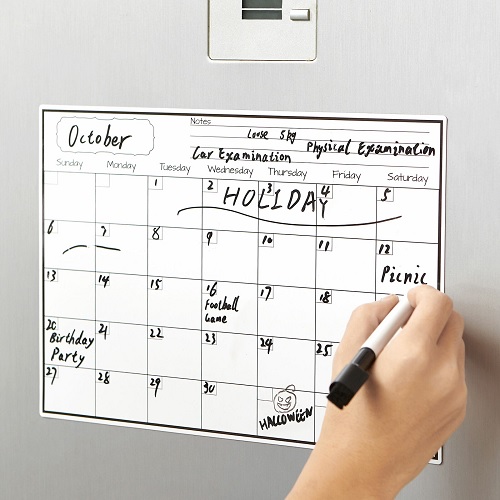 Notes
October
Loose 5kg
Physical Examination
Car Examination
Sunday Monday Tuesday Wednesday Thursday Friday Saturday
1 2 3 4 5
HOLIDAY
6 7 8 9 10 11 12
Picnic
13 14 15 16 17 18
Football
Game
20 21 22 23 24 25
Birthday
Party
27 28 29 30
HALLOWEEN